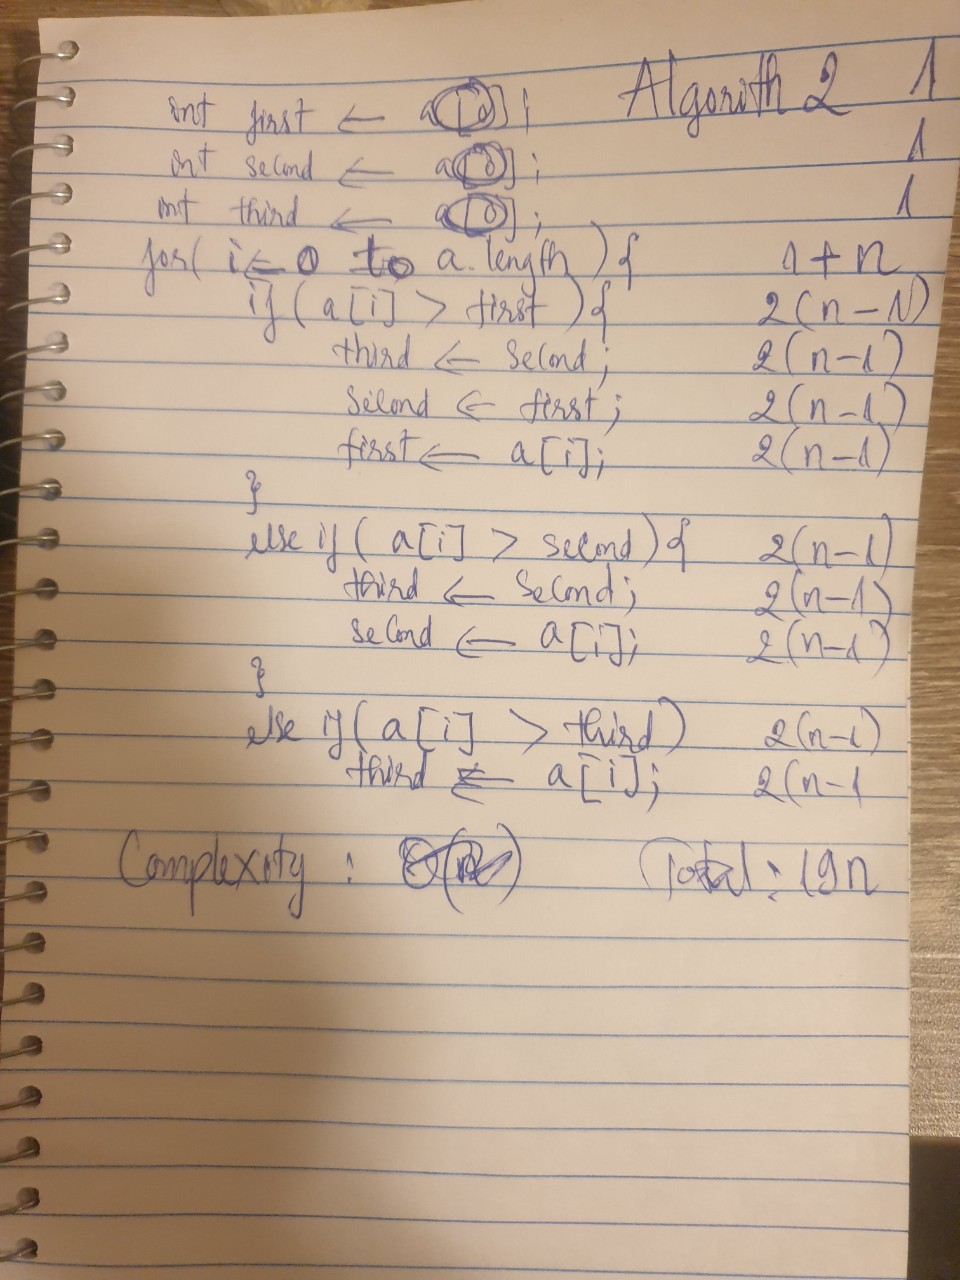 Algorith 2 1
int first ← a[0]; 1
int second ← a[0]; 1
int third ← a[0]; 1
for( i ← 0 to a.length ){ 1 + n
if ( a[i] > first ){ 2(n-1)
third ← second; 2(n-1)
second ← first; 2(n-1)
first ← a[i]; 2(n-1)
}
else if ( a[i] > second ){ 2(n-1)
third ← second; 2(n-1)
second ← a[i]; 2(n-1)
}
else if ( a[i] > third ) 2(n-1)
third ← a[i]; 2(n-1
Complexity : O(n) Total : 19n